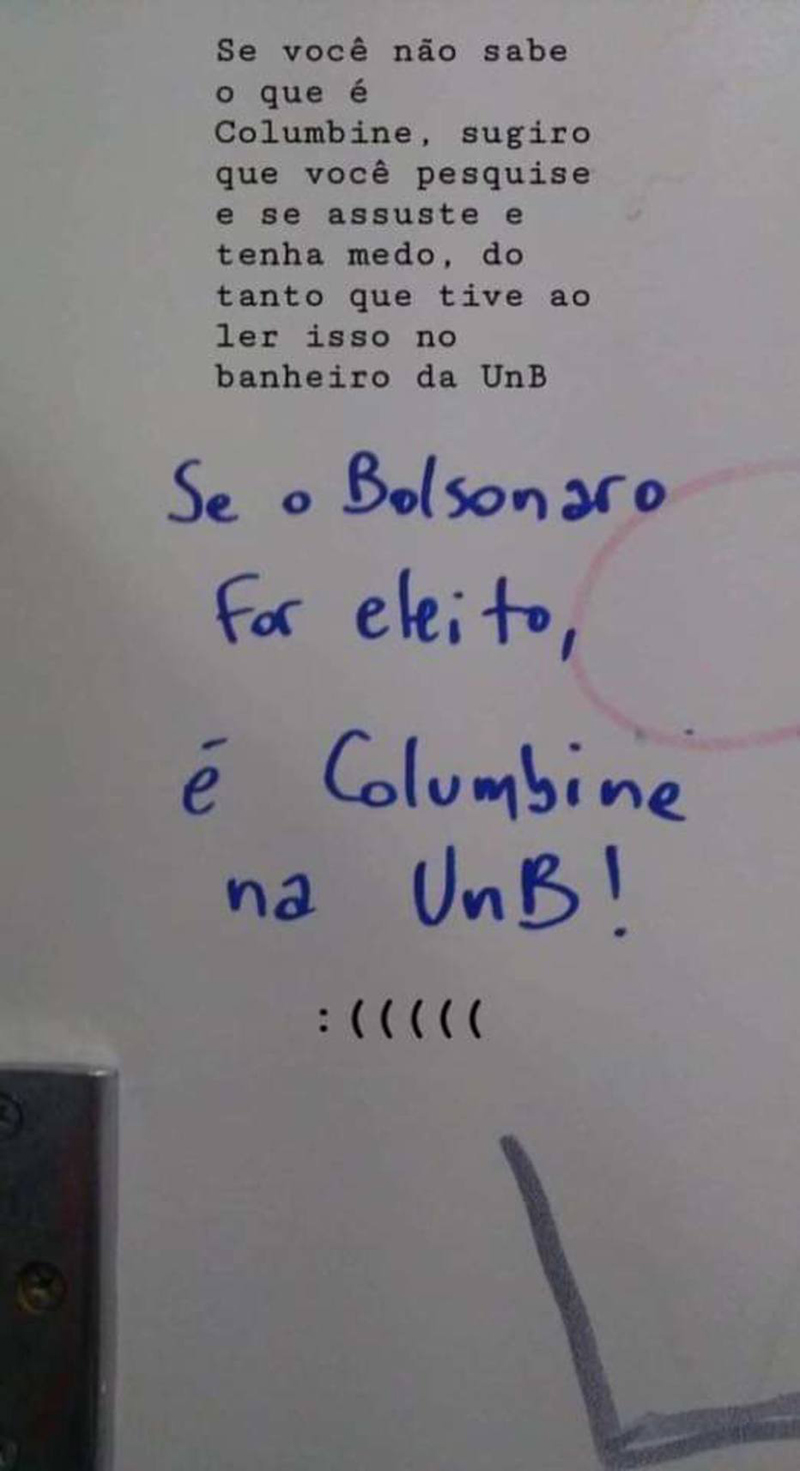 Se você não sabe
o que é
Columbine, sugiro
que você pesquise
e se assuste e
tenha medo, do
tanto que tive ao
ler isso no
banheiro da UnB
Se o Bolsonaro
for eleito,
é Columbine
na UnB!
:(((((